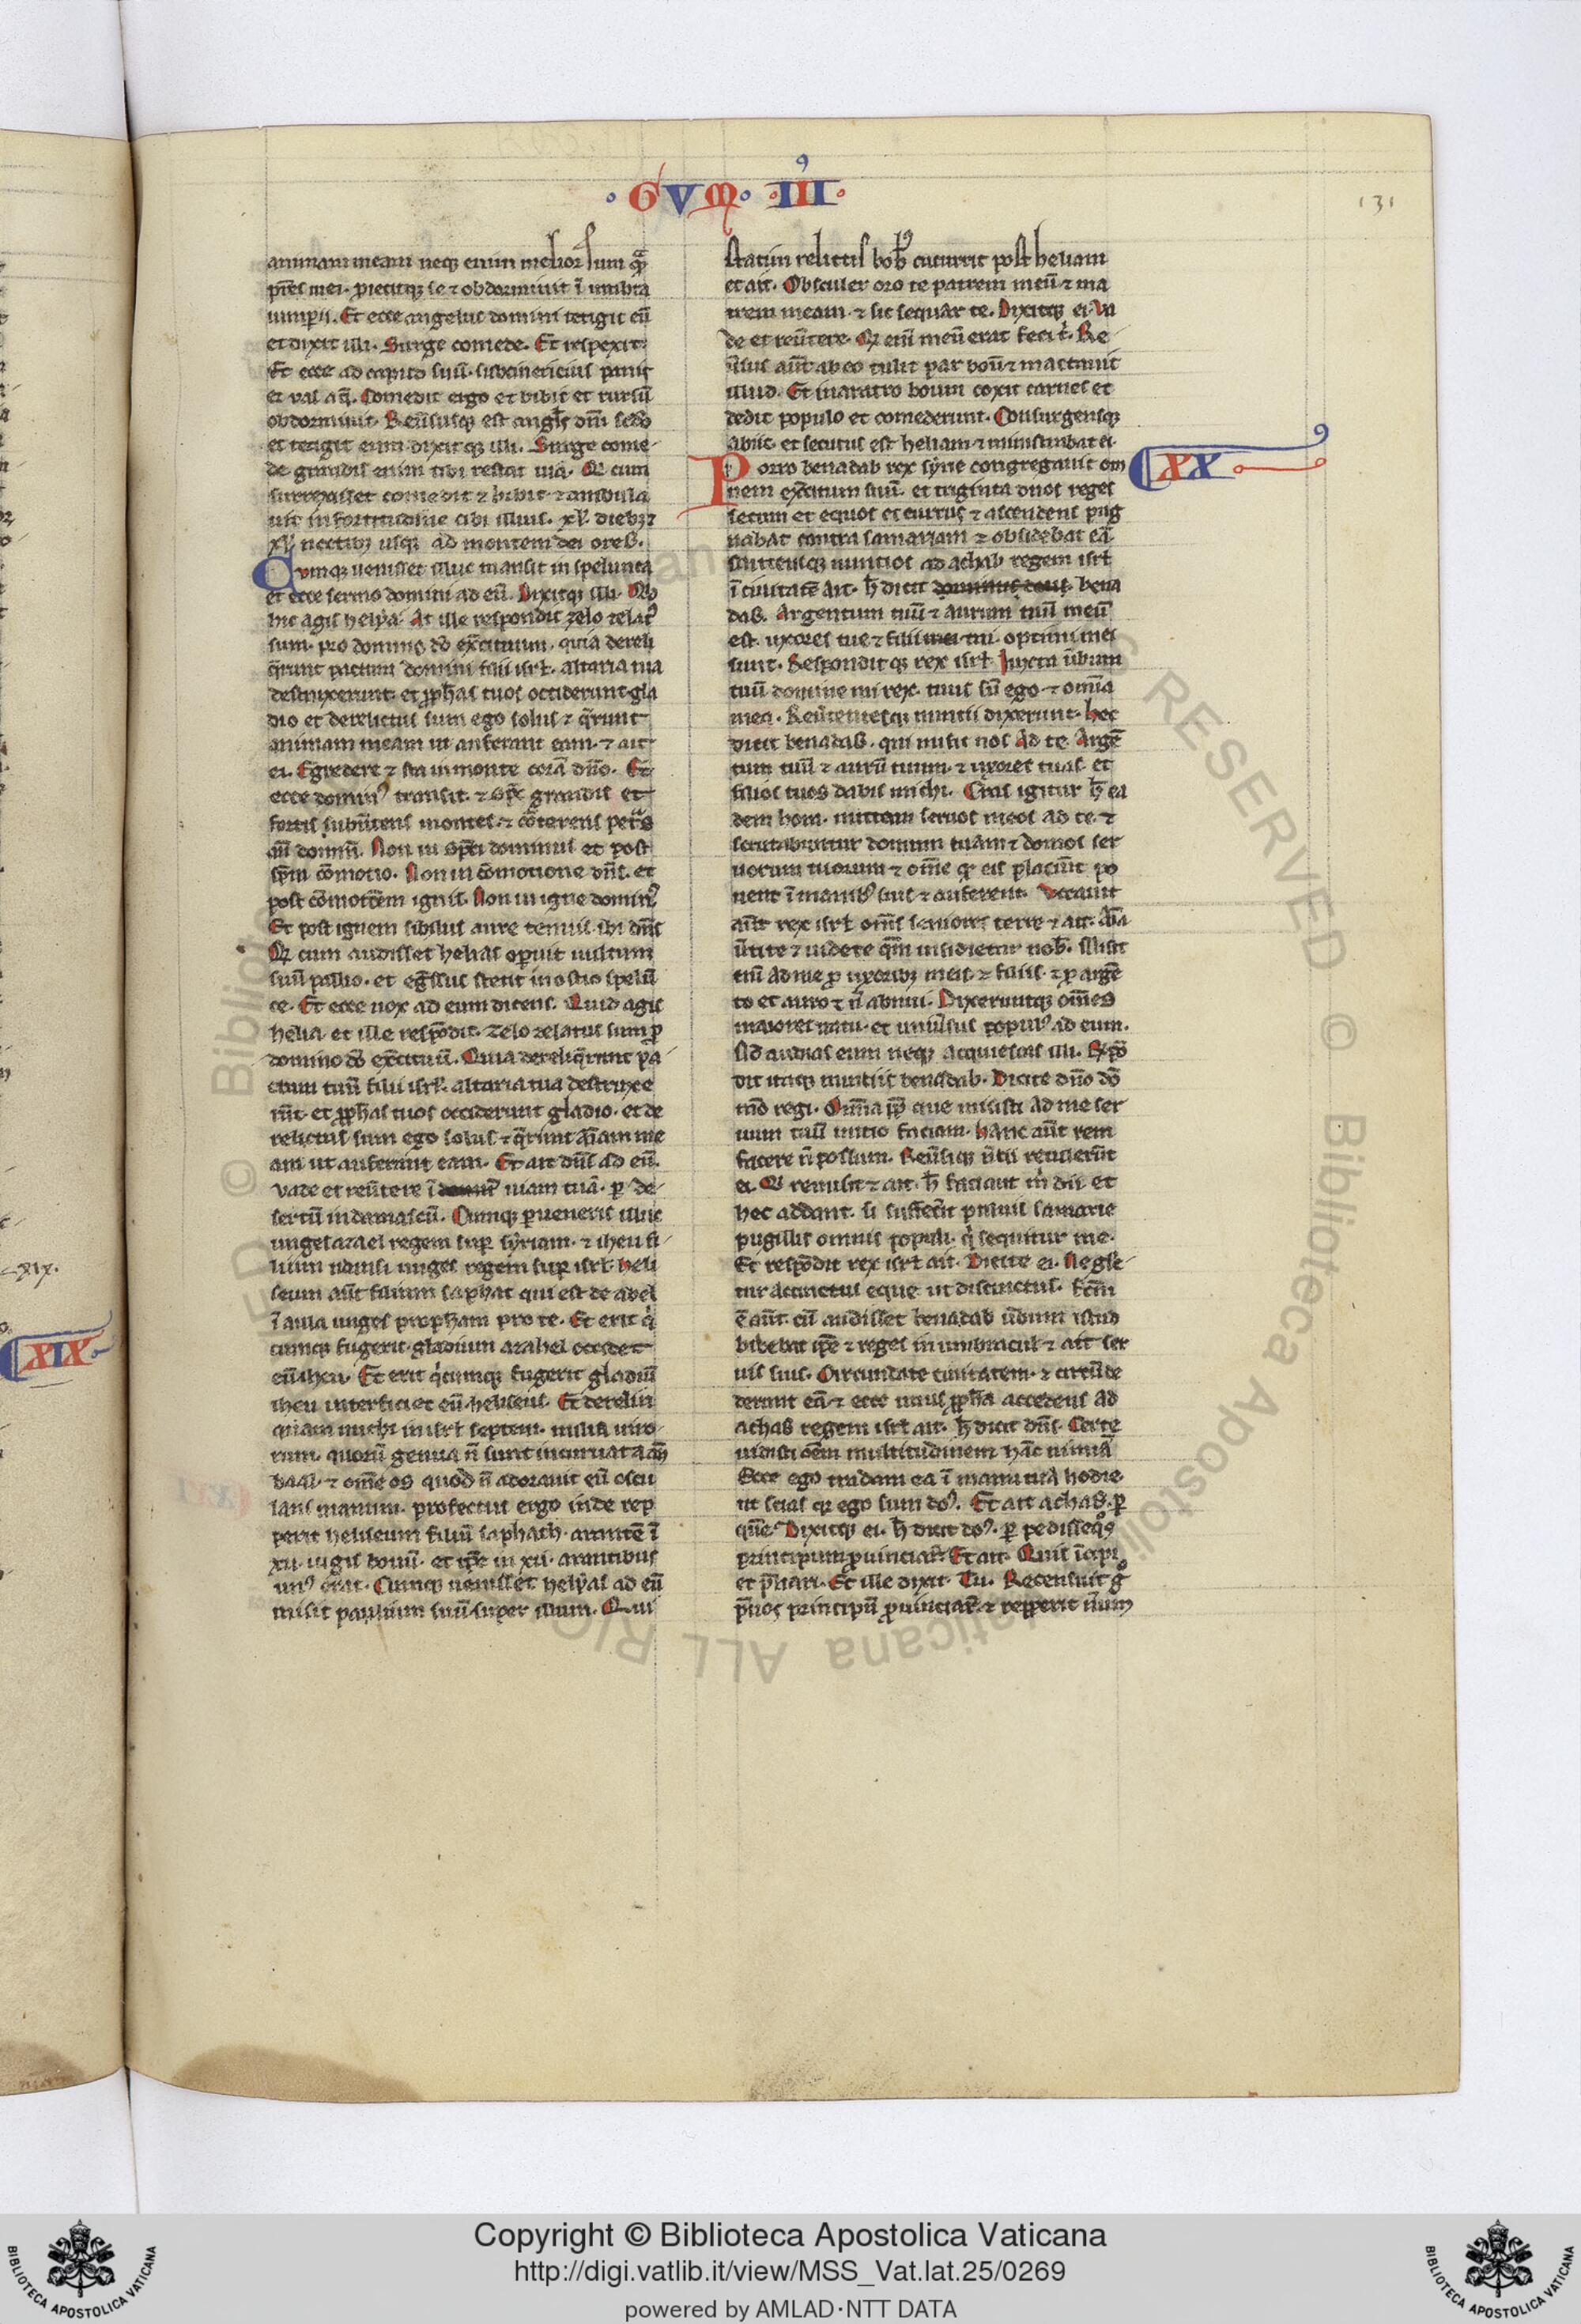 GVM III
131
animam meam neqꝫ enim melior sum qͣ
pr̄es mei. ꝓiecitqꝫ se ⁊ obdormiuit ī umbra
iunip̄i. Et ecce angelus domini tetigit eū
et dixit illi. Surge comede. Et respexit.
Et ecce ad caput suū. subcinericius panis
et uas aq̄. Comedit ergo et bibit et rursū
obdormiuit. Reūsusqꝫ est angl̄s dn̄i scd̄o
et tetigit eum dixitqꝫ illi. Surge come
de grandis enim tibi restat uia. Qͥ cum
surrexisset comedit ⁊ bibit ⁊ ambula
uit in fortitudine cibi illius. xl. diebꝫ ⁊
xl. noctibꝫ usqꝫ ad montem dei oreb.
Cvmqꝫ uenisset illuc mansit in spelunca
et ecce sermo domini ad eū. Dixitqꝫ illi. Qͥd
hic agis helya. At ille respondit zelo zelatꝰ
sum. pro domino dō ex̄cituum. quia dereli
q̄runt pactum domini filii isrł. altaria tua
destruxerunt. et ꝓph̄as tuos occiderunt gla
dio et derelictus sum ego solus ⁊ q̄runt
animam meam ut auferant eam. ⁊ ait
ei. Egredere ⁊ sta in monte corā dn̄o. Et
ecce dominꝰ transit. ⁊ sp̄c grandis et
fortis subūtens montes. ⁊ cōterens petͣs
an̄ domin̄. Non in sp̄u dominus et post
sp̄m cōmotio. Non in cōmotione dn̄s. et
post cōmotōem ignis. Non in igne dominꝰ
Et post ignem sibilus aure tenuis. ibi dn̄s
Qͥ cum audisset helias operuit uultum
suū pallio. et egͣssus stetit in ostio spelū
ce. Et ecce uox ad eum dicens. Quid agis
helia. et ille respōdit. Zelo zelatus sum ꝓ
domino dō ex̄cituū. Quia dereliq̄runt pa
ctum tuū filii isrł. altaria tua destruxe
rūt. et ꝓph̄as tuos occiderunt gladio. et de
relictus sum ego solus ⁊ q̄runt aīam me
am ut auferant eam. Et ait dn̄s ad eū.
vade et reūtere ī uiam tuā. ꝑ de
sertū in damascū. Cumqꝫ ꝑueneris illuc
unges azael regem suꝑ syriam. ⁊ iheu fi
lium namsi unges regem suꝑ isrł. heli
seum aūt filium saphat qui est de abel
ī aula unges propham pro te. Et erit qͥ
cumqꝫ fugerit gladium azahel occidet
eū iheu. Et erit qͥcumqꝫ fugerit gladiū
iheu interficiet eū heliseus. Et derelin
quam michi in isrł septem. milia uiro
rum. quorū genua n̄ sunt incuruata an̄
baal. ⁊ om̄e os quod n̄ adorauit eū oscu
lans manum. profectus ergo inde rep
perit heliseum filiū saphath. arantē ī
xii. iugis boum. et ip̄e in xii. arantibus
unꝰ erat. Cumqꝫ uenisset helyas ad eū
misit pallium suū super illum. Qui
statim relictis bobꝰ cucurrit post heliam
et ait. Obsculer oro te patrem meū ⁊ ma
trem meam. ⁊ sic sequar te. Dixitqꝫ ei. Va
de et reūtere. Qͥ enī meū erat feci tͥ. Re
ūsus aūt ab eo tulit par boū ⁊ mactauit
illud. Et in aratro boum coxit carnes et
dedit populo et comederunt. Consurgensqꝫ
abiit. et secutus est heliam ⁊ ministrabat ei.
Porro benadab rex syrie congregauit om
nem ex̄citum suū. et triginta duos reges
secum et equos et currus ⁊ ascendens pug
nabat contra samariam ⁊ obsidebat eā.
XX
Mittensqꝫ nuntios ad achab regem isrł
ī ciuitatē ait. h̄ dicit bena
dab. Argentum tuū ⁊ aurum tuū meū
est. uxores tue ⁊ filii tui optimi mei
sunt. Responditqꝫ rex isrł. Iuxta ūbum
tuū domine mi rex. tuus sū ego ⁊ omīa
mea. Reūtentesqꝫ nuntii dixerunt. hec
dicit benadab. qui misit nos ad te. Argē
tum tuū ⁊ aurū tuum. ⁊ uxores tuas et
filios tuos dabis michi. Cras igitur h̄ ea
dem hora. mittam seruos meos ad te. ⁊
scrutabuntur domum tuam ⁊ domos ser
uorum tuorum ⁊ om̄e qͥ eis placūit po
nent ī manibꝰ suis ⁊ auferent. Vocauit
aūt rex isrł om̄s seniores terre ⁊ ait. Aīa
ūtite ⁊ uidete qm̄ insidietur nob̄. Misit
enī ad me ꝓ uxoribꝫ meis ⁊ filiis ⁊ ꝓ argē
to et auro ⁊ n̄ abnui. Dixeruntqꝫ om̄es
maiores natu. et uniūsus populꝰ ad eum.
Nō audias eum neqꝫ acquiescas illi. Respō
dit itaqꝫ nuntiis benadab. Dicite dn̄o
mō regi. Omīa ꝓpt̄ que misisti ad me ser
uum tuū initio faciam. hanc aūt rem
facere n̄ possum. Reūsiqꝫ nūtii retulerūt
ei. Qͥ remisit ⁊ ait. h̄ faciant m̄ dii et
hec addant. si suffecit puluis samarie
pugillis omnis populi. qͥ sequitur me.
Et respōdit rex isrł ait. Dicite ei. Ne glie
tur accinctus eque ut discinctus. Fcm̄
ē aūt. cū audisset benadab ūbum istud
bibebat ip̄e ⁊ reges in umbraculis ⁊ ait ser
uis suis. Circundate ciuitatem. ⁊ circūde
derunt eā. ⁊ ecce unus ꝓph̄a accedens ad
achab regem isrł ait. h̄ dicit dn̄s. Certe
uidisti om̄em multitudinem hanc nimiā
Ecce ego tradam ea ī manu tua hodie.
ut scias qꝫ ego sum dn̄s. Et ait achab. ꝑ
quē. Dixitqꝫ ei. h̄ dicit dn̄s. ꝑ pedisseqͦs
principum ꝓuinciaꝝ. Et ait. Quis īcipi
et p̄liari. Et ille dixit. Tu. Recensuit gͦ
pueros principū ꝓuinciaꝝ. ⁊ repperit nūm
xix.
XIX
Copyright © Biblioteca Apostolica Vaticana
http://digi.vatlib.it/view/MSS_Vat.lat.25/0269
powered by AMLAD·NTT DATA